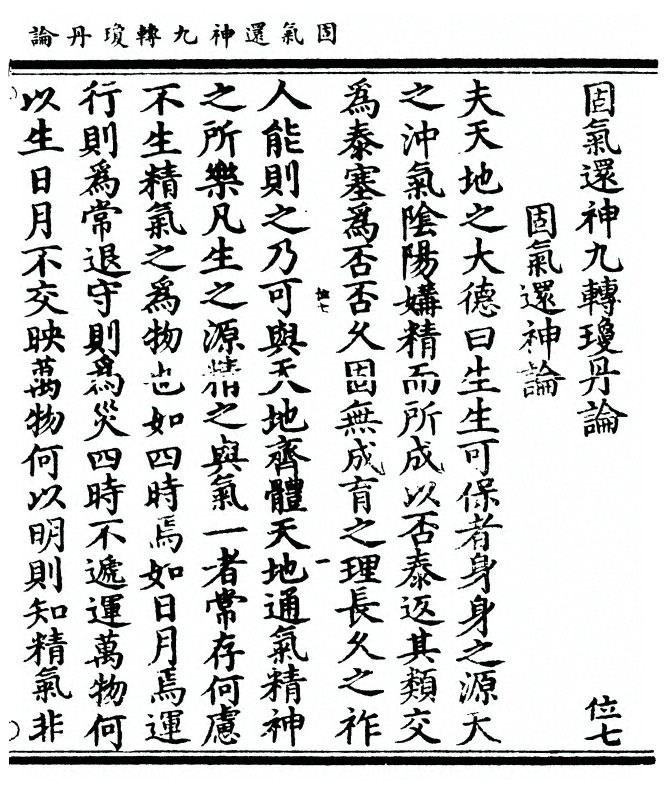 固氣還神九轉瓊丹論
固氣還神九轉瓊丹論
位七
固氣還神論
夫天地之大德曰生生可保者身身之源天
之沖氣陰陽媾精而所成以否泰返其類交
為泰塞為否否久固無成育之理長久之祚
位七
一
人能則之乃可與天地齊體天地通氣精神
之所樂凡生之源精之與氣一者常存何慮
不生精氣之為物也如四時焉如日月焉運
行則為常退守則為災四時不遞運萬物何
以生日月不交映萬物何以明則知精氣非